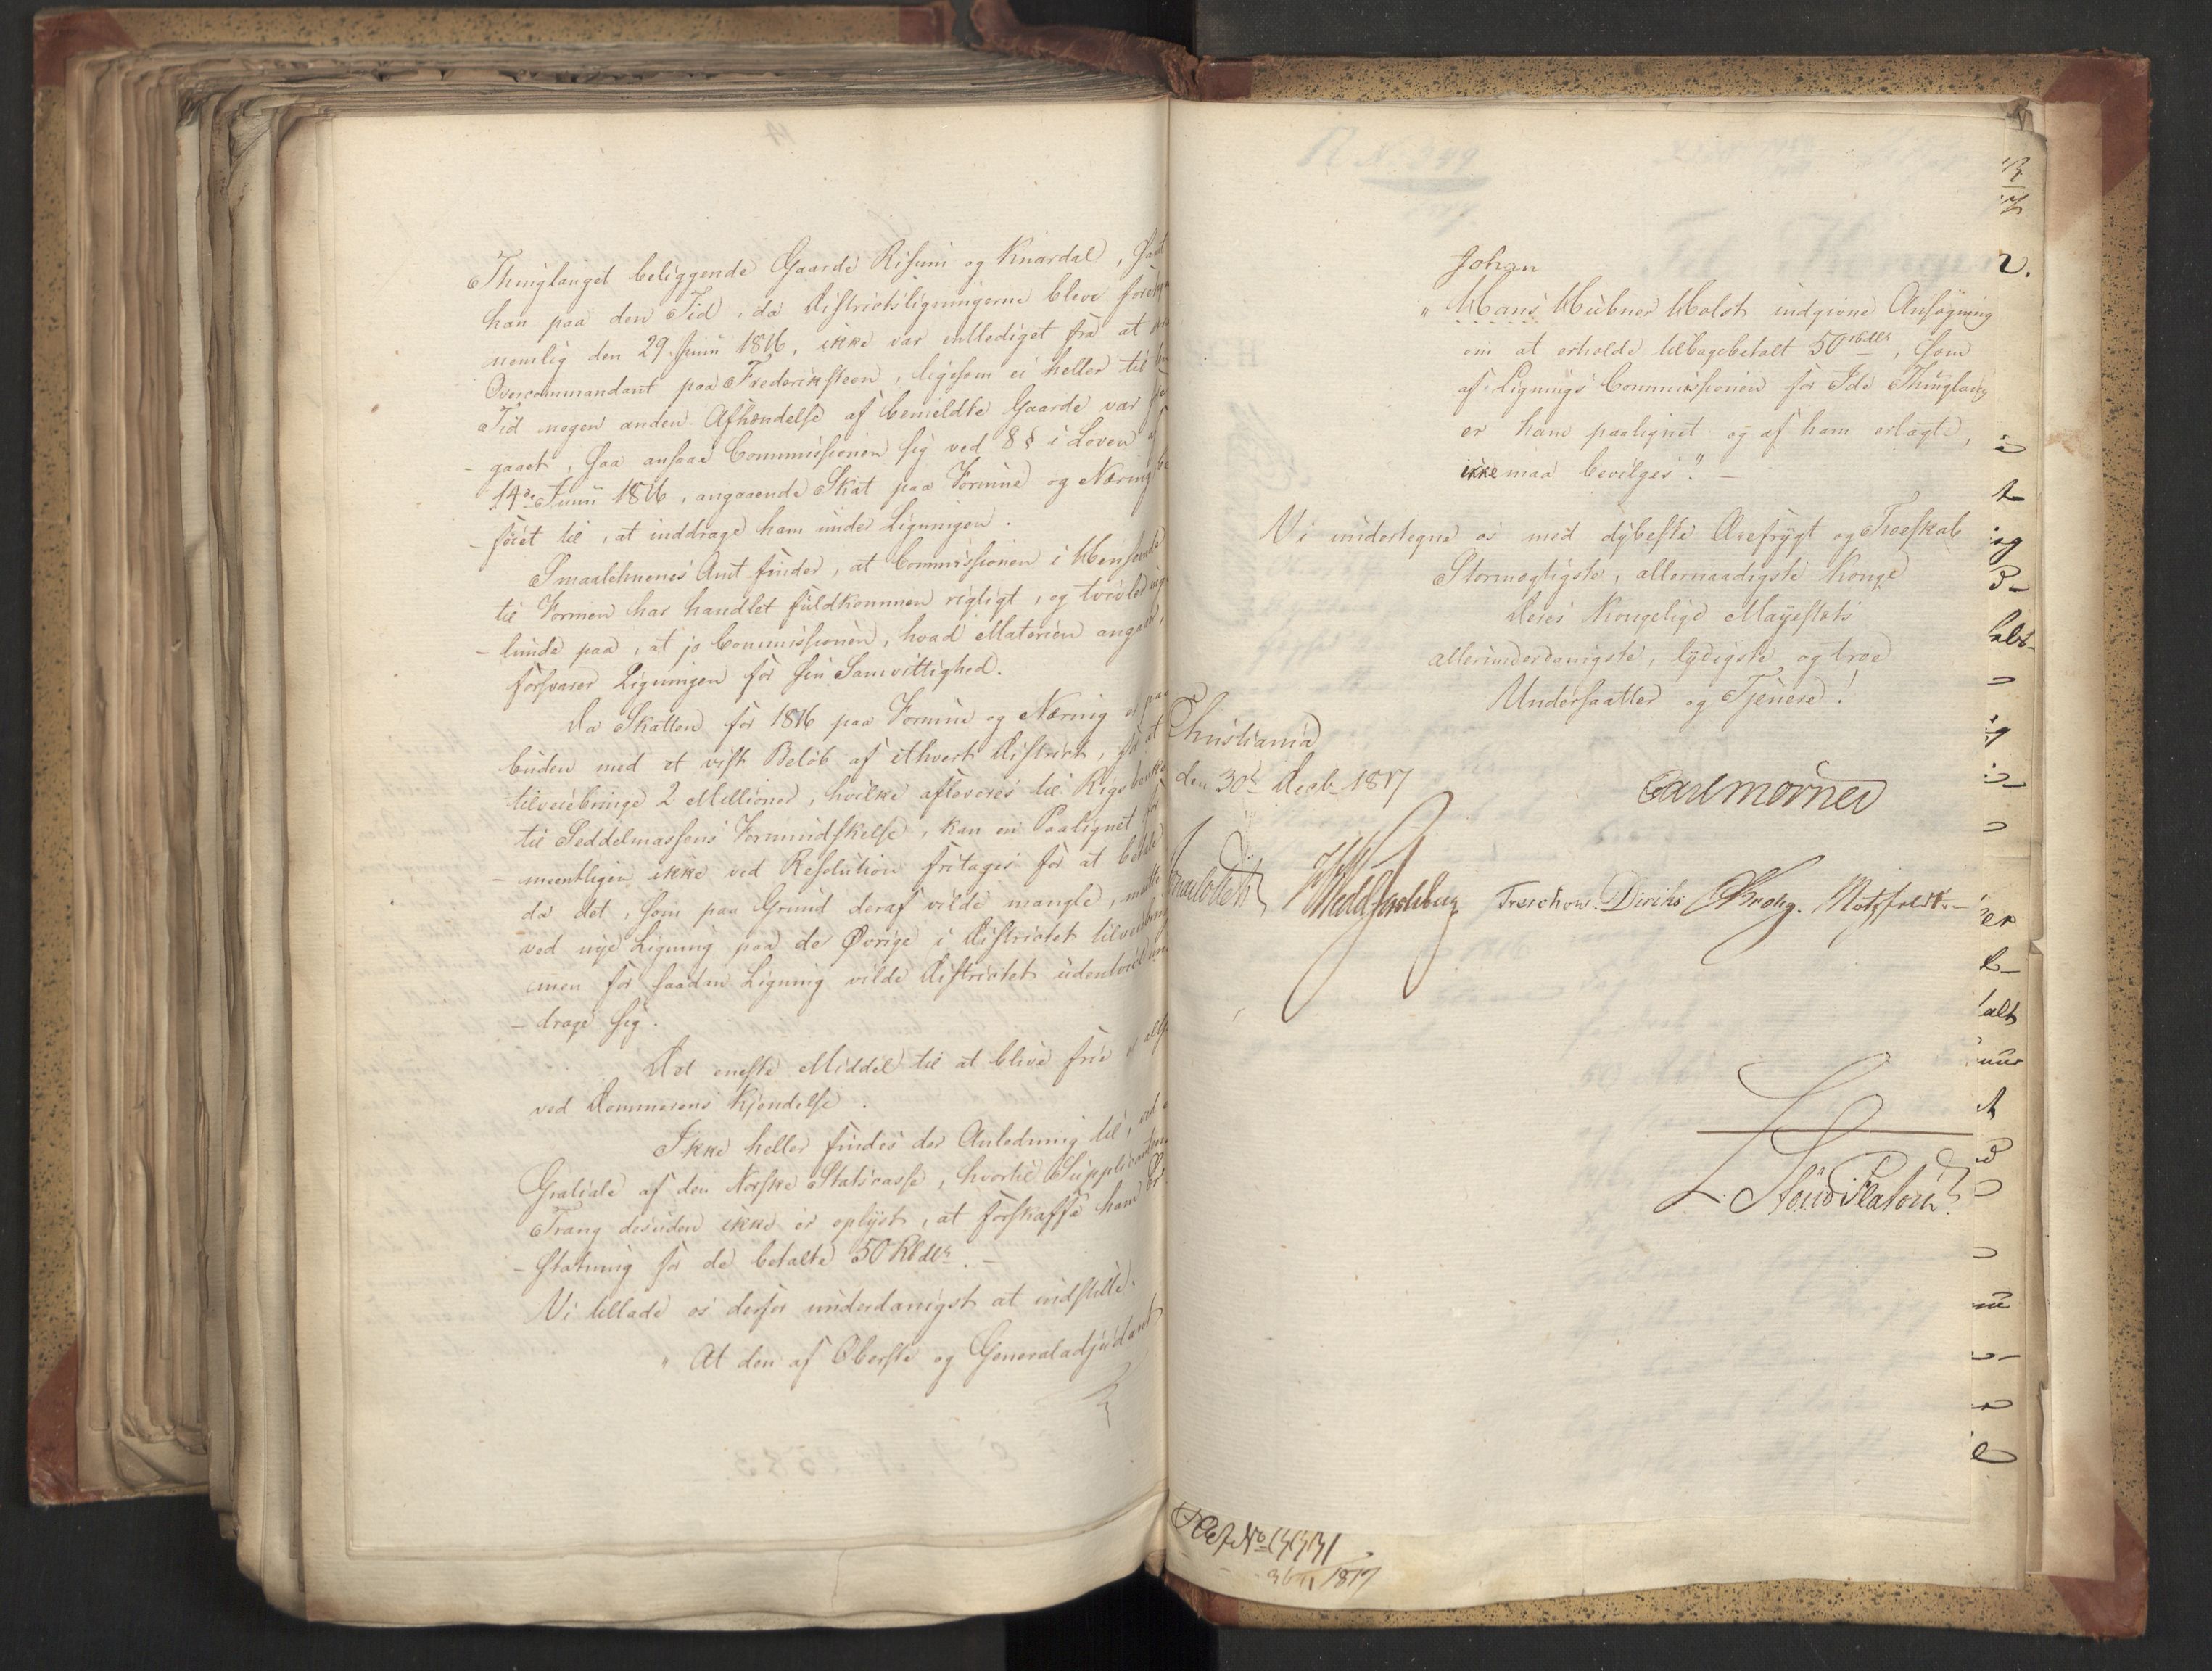 Thinglauget beliggende Gaarde Risum og Knardal, har
han paa den Tid, da Districtsligningerne bleve
nemlig den 29. Junii 1816, ikke var entlediget fra at
Overcommandant paa Frederiksteen, ligesom ei heller til
Tid nogen anden Afhændelse af bemeldte Gaarde var
- gaaet, saa ansaae Commissionen sig ved 8 § i Loven af
14de Junii 1816, angaaende Skat paa Formue og Næring
- føiet til, at inddrage ham under Ligningen.
Smaalehnenes Amt finder, at Commissionen i Henseende
til Formen har handlet fuldkommen rigtigt, og tvivler
- lunde paa, at jo Commissionen, hvad Materien angaaer,
forsvarer Ligningen for sin Samvittighed.
Da Skatten for 1816 paa Formue og Næring er paa
buden med et vist Beløb af ethvert District, for at
tilveiebringe 2 Millioner, hvilke afleveres til Rigsbanken
til Seddelmassens Formindskelse, kan en Paalignet
- meentligen ikke ved Resolution fritages for at betale
da det, som paa Grund deraf vilde mangle, maatte
ved nye Ligning paa de Øvrige i Districtet
men for saadan Ligning vilde Districtet udentvivl
- drage sig.
Det eneste Middel til at blive frie er
ved Dommerens Kjendelse.
Ikke heller findes der Anledning til, ved
Gratiale af den Norske Statscasse, hvortil
Trang desuden ikke er oplyst, at forskaffe ham Er-
- statning for de betalte 50 Rbdlr. -
Vi tillade os derfor underdanigst at indstille:
" At den af Oberste og Generaladjudant
Johan
" Hans Hübner Holst indgivne Ansøgning
om at erholde tilbagebetalt 50 rbdlr, som
af Lignings Commissionen for Idde Thinglaug
er ham paalignet og af ham erlagte,
ikke maa bevilges". -
Vi undertegne os med dybeste Ærefrygt og Troeskab
Stormægtigste, allernaadigste Konge
Deres Kongelige Mayestæts
allerunderdanigste, lydigste og troe
Undersaatter og Tjenere!
Christiania
den 30te Decbr 1817
Carl Mörner
Treschow. Diriks Krohg. Motzfeldt. -
L. Stoud Platou
1817